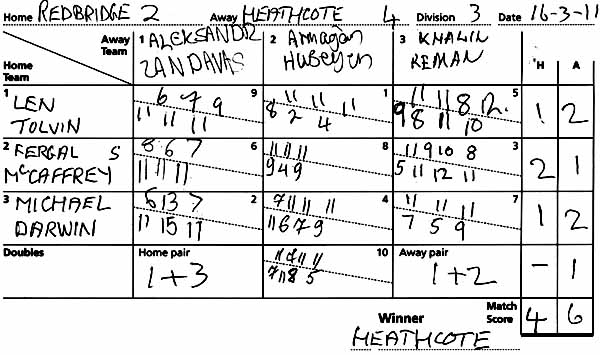 Home REDBRIDGE 2 Away HEATHCOTE 4 Division 3 Date 16-3-11
Away Team
Home Team
1 ALEKSANDR
ZANDAVAS
2 Armagan
Huseyin
3 KHALIL
REMAN
H A
1 LEN
TOLVIN
9
6 7 9
11 11 11
1
11 11 11
8 2 4
5
11 11 8 12
9 8 11 10
1 2
2 FERGAL S
McCAFFREY
6
8 6 7
11 11 11
8
11 11 11
9 4 9
3
11 9 10 8
5 11 12 11
2 1
3 MICHAEL
DARWIN
2
6 13 7
11 15 11
4
7 11 11 11
11 6 7 9
7
11 11 11
7 5 9
1 2
Doubles
Home pair
1+3
10
7 11 8 5
Away pair
1+2
- 1
Winner
HEATHCOTE
Match Score
4 6